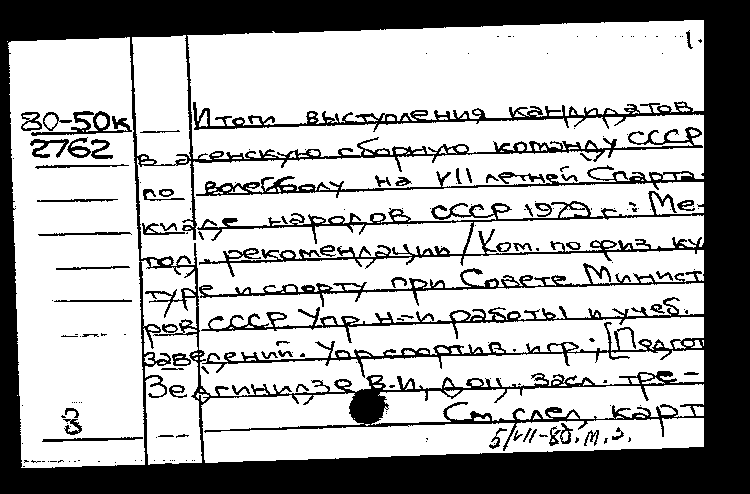 1.
80-50к Итоги выступления кандидатов
2762 в женскую сборную команду СССР
по волейболу на VII летней Спарта-
киаде народов СССР 1979 г.: Ме-
тод. рекомендации / Ком. по физ. ку
туре и спорту при Совете Минист
ров СССР. Упр. н-и. работы и учеб.
заведений. Упр. спортив. игр.; [Подгот
Зедгинидзе В.И., доц., засл. тре-
См. след. карт
5/VII-80. М.З.